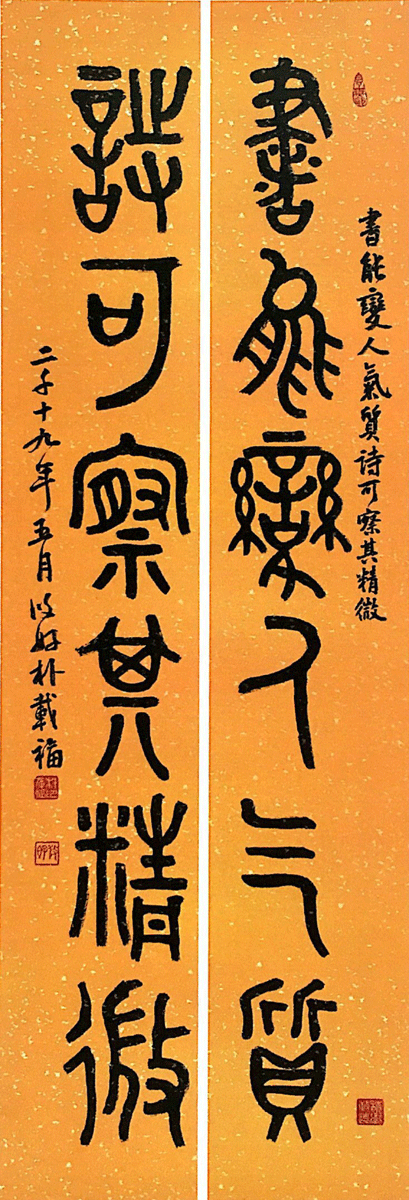 書能變人氣質诗可察其精微
書能變人气質
詩可察其精微
二千十九年五月攸好朴載福